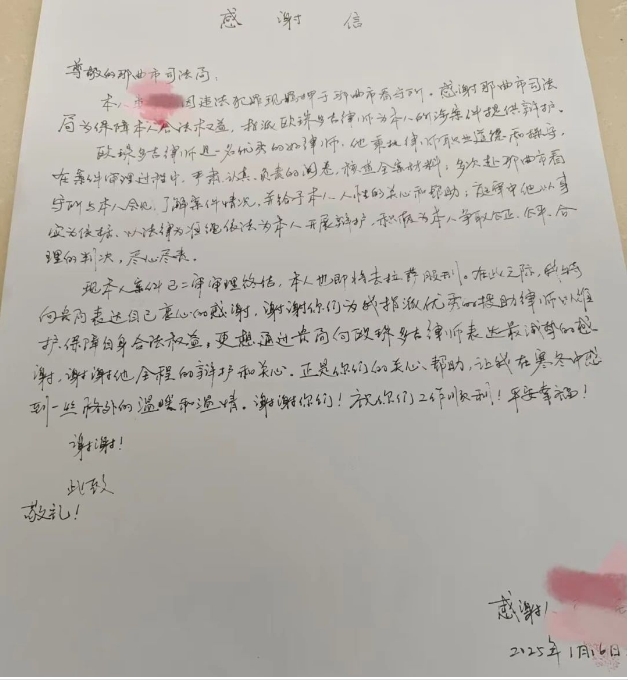 感谢信
尊敬的那曲市司法局：
本人因违法犯罪现羁押于那曲市看守所。感谢那曲市司法
局为保障本人合法权益，指派欧珠多吉律师为本人所涉案件提供辩护。
欧珠多吉律师是一名优秀的好律师，他秉持律师职业道德和操守，
在案件审理过程中，严肃、认真、负责的阅卷，核查全案材料；多次赴那曲市看
守所与本人会见，了解案件情况，并给予本人人性的关心和帮助；在庭审中他以事
实为依据、以法律为准绳依法为本人开展辩护，积极为本人争取公正、公平、合
理的判决，尽心尽责。
现本人案件已二审审理终结，本人也即将去拉萨服刑。在此之际，我特
向贵局表达自己衷心的感谢，谢谢你们为我指派优秀的援助律师以维
护、保障自身合法权益。更想通过贵局向欧珠多吉律师表达最诚挚的感
谢，谢谢他全程的辩护和关心。正是你们的关心、帮助，让我在寒冬中感
到一些格外的温暖和温情。谢谢你们！祝你们工作顺利！平安幸福！
谢谢！
此致
敬礼！
感谢人
2025年1月16日